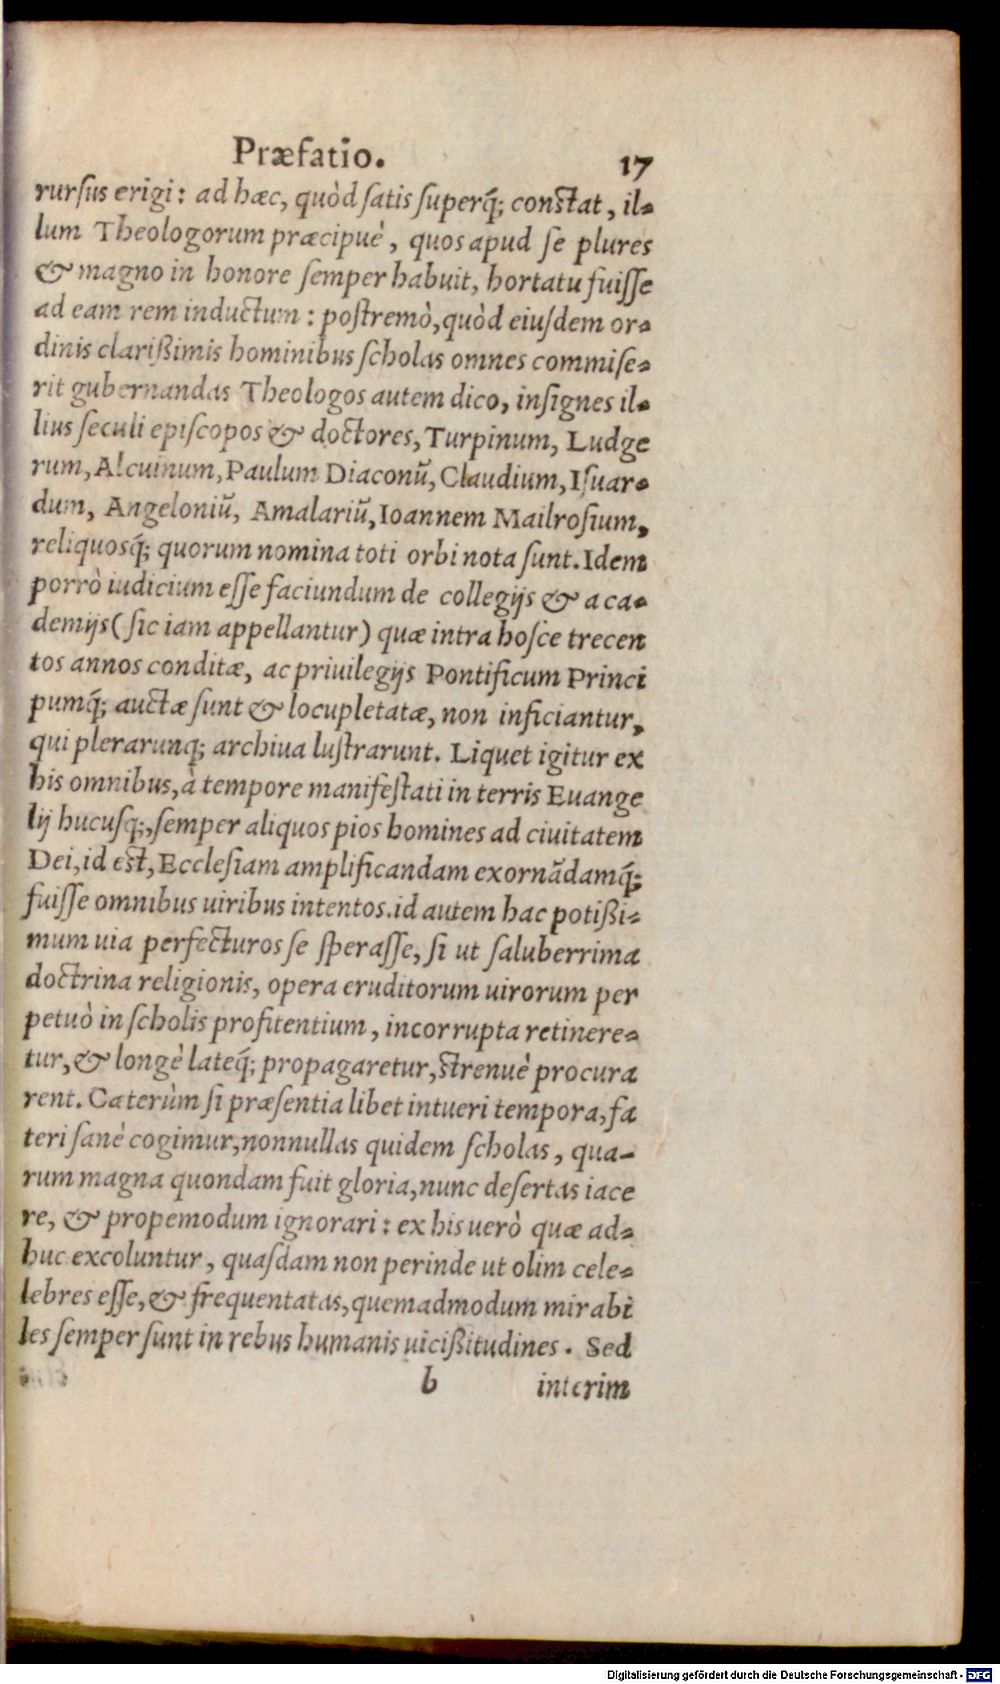 Præfatio. 17
rurſus erigi: ad hæc, quòd ſatis ſuperq́; constat, il-
lum Theologorum præcipuè, quos apud ſe plures
& magno in honore ſemper habuit, hortatu fuiſſe
ad eam rem inductum: poſtremò, quòd eiuſdem or-
dinis clarißimis hominibus ſcholas omnes commiſe-
rit gubernandas Theologos autem dico, inſignes il-
lius ſeculi epiſcopos & doctores, Turpinum, Ludge
rum, Alcuinum, Paulum Diaconũ, Claudium, Iſuar-
dum, Angeloniũ, Amalariũ, Ioannem Mailroſium,
reliquosq́; quorum nomina toti orbi nota ſunt. Idem
porrò iudicium eſſe faciundum de collegijs & aca-
demijs (ſic iam appellantur) quæ intra hoſce trecen
tos annos conditæ, ac priuilegijs Pontificum Princi
pumq́; auctæ ſunt & locupletatæ, non inficiantur,
qui plerarunq; archiua luſtrarunt. Liquet igitur ex
his omnibus, à tempore manifeſtati in terris Euange
lij hucuſq;, ſemper aliquos pios homines ad ciuitatem
Dei, id est, Eccleſiam amplificandam exornãdamq́;
fuiſſe omnibus uiribus intentos. id autem hac potißi-
mum uia perfecturos ſe ſperaſſe, ſi ut ſaluberrima
doctrina religionis, opera eruditorum uirorum per
petuò in ſcholis profitentium, incorrupta retinere-
tur, & longè lateq́; propagaretur, strenuè procura
rent. Cæterùm ſi præſentia libet intueri tempora, fa
teri ſanè cogimur, nonnullas quidem ſcholas, qua-
rum magna quondam fuit gloria, nunc deſertas iace
re, & propemodum ignorari: ex his uerò quæ ad-
huc excoluntur, quaſdam non perinde ut olim cele-
lebres eſſe, & frequentatas, quemadmodum mirabi
les ſemper ſunt in rebus humanis uicißitudines. Sed
b interim
Digitalisierung gefördert durch die Deutsche Forschungsgemeinschaft - DFG